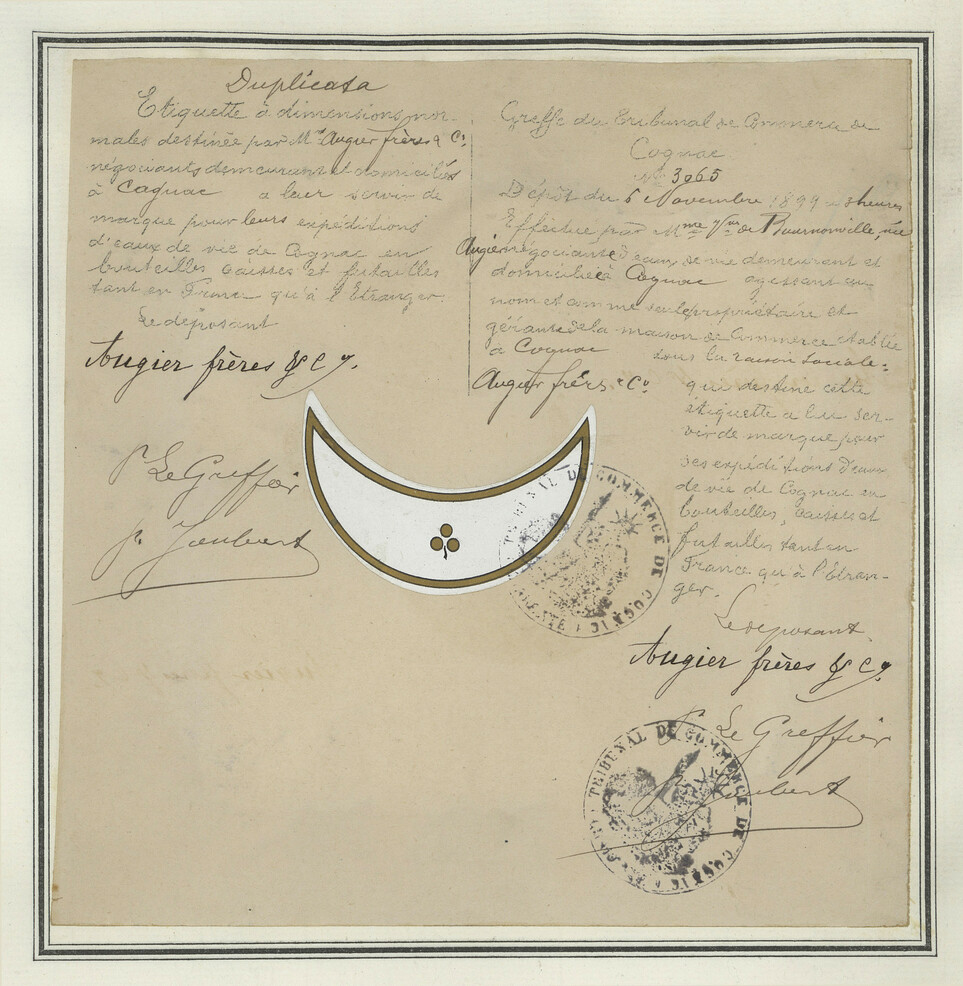 Duplicata
Etiquette à dimensions nor-
males destinée par M.rs Augier frères & Co.
négociants demeurant et domiciliés
à Cognac a leur servir de
marque pour leurs expéditions
d'eaux de vie de Cognac en
bouteilles caisses et futailles
tant en France qu'à l'Etranger.
Le déposant
Augier frères & Cy.
P. Le Greffier
P. Joubert
Greffe du Tribunal de Commerce de
Cognac
No 3065
Dépôt du 6 Novembre 1899 à 3 heures
Effectué par Mme Vve de Bournonville, née
Augier négociante d'eaux de vie demeurant et
domiciliée à Cognac agissant au
nom et comme seule propriétaire et
gérante de la maison de Commerce établie
à Cognac sous la raison sociale:
Augier frères & Co.
qui destine cette
étiquette a lui ser-
vir de marque pour
ses expéditions d'eaux
de vie de Cognac en
bouteilles, caisses et
futailles tant en
France qu'à l'Etran-
ger.
Le déposant
Augier frères & Cy.
P. Le Greffier
P. Joubert
TRIBUNAL DE COMMERCE DE COGNAC
TRIBUNAL DE COMMERCE DE COGNAC